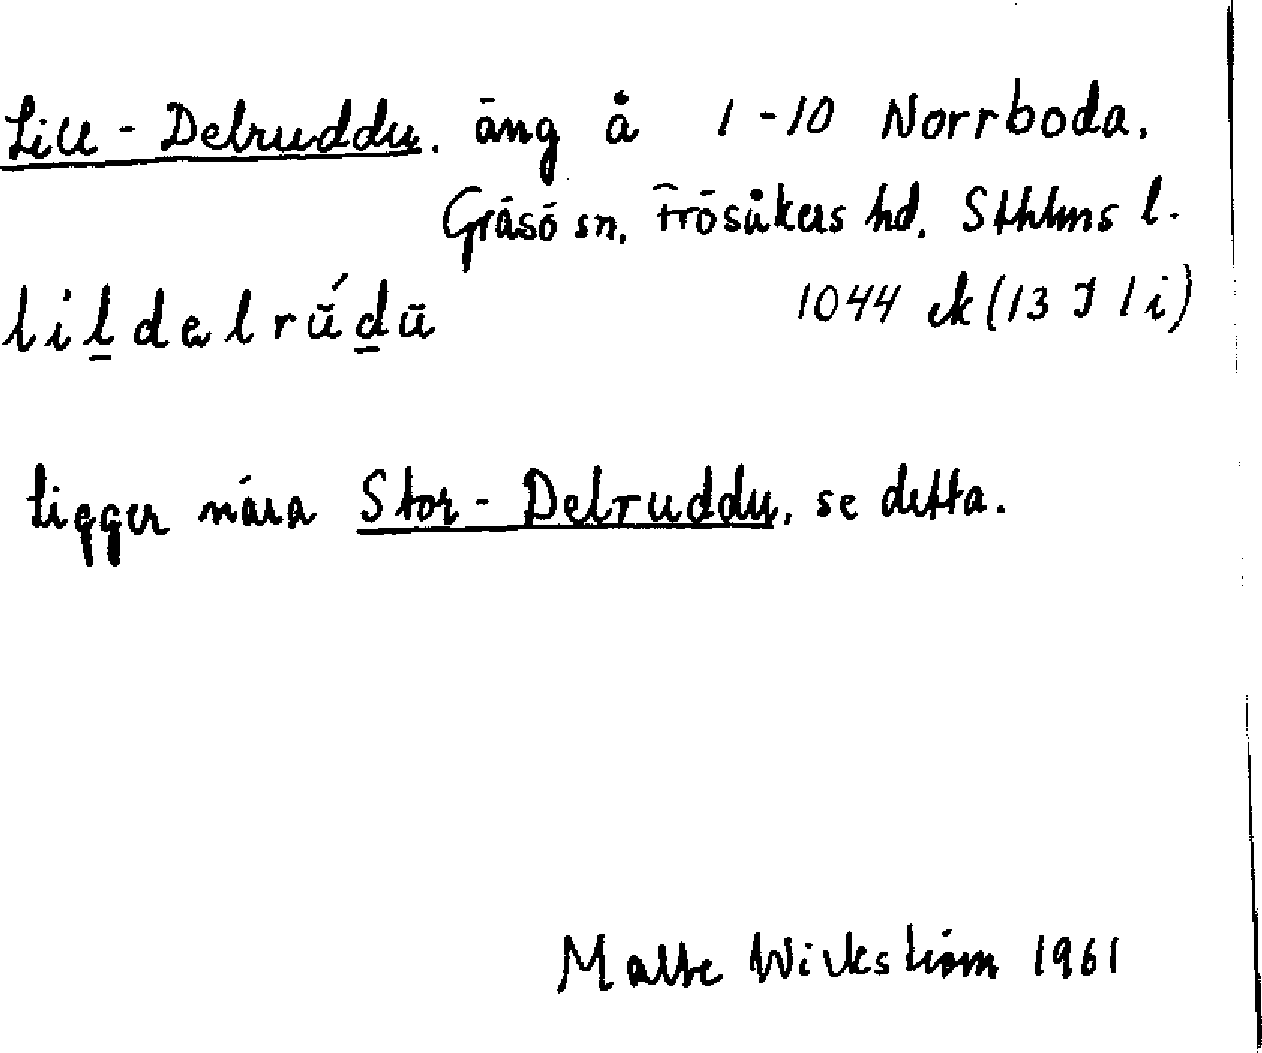 Lill-Delruddu. äng å 1-10 Norrboda.
Gräsö sn. Frösåkers hd. Sthlms l.
lil̲delrú̆d̲ŭ 1044 ek (13 I 1 i)
ligger nära Stor-Delruddu, se detta.
Malte Wickström 1961